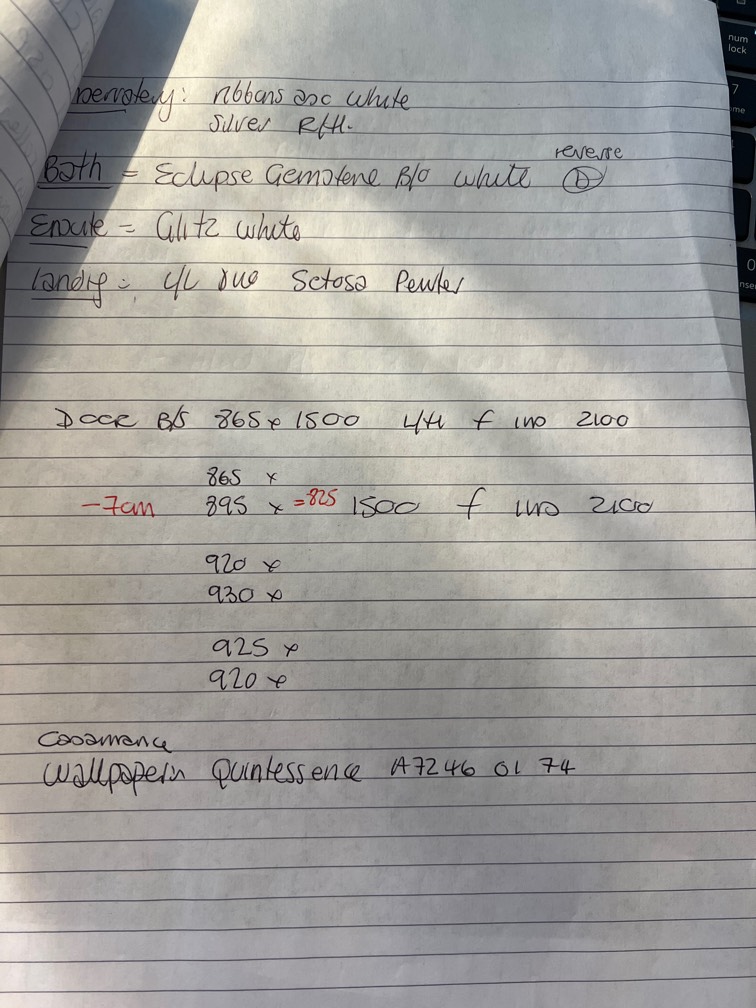 ribbons asc white
Silver R/H.
reverse
Bath = Eclipse Gemstone B/O white D
Ensuite = Glitz white
Landig = C/L duo Setosa Pewter
DOOR B/S 865 x 1500 L/H f into 2100
865 x
-7cm 895 x =825 1500 f into 2100
920 x
930 x
925 x
920 x
Casamance
Wallpaper in Quintessence A7246 01 74
7
num
lock
0